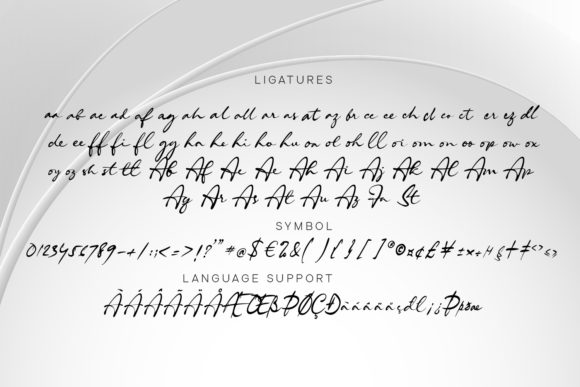 LIGATURES
aa ab ae ad af ag ah al all ar as at az br ce ee ch cl co ct er ez dl
de ee ff fi fl gg ha he hi ho hu oa ol oh ll oi om on oo op ow ox
oy oz sh st tt Ab Af Ac Ae Ah Ai Aj Ak Al Am Ap
Ag Ar As At Au Az In St
SYMBOL
0123456789-+/:;<=>!?'"#@$€&( ){}[]®©¤¢£#±×÷§†‡<>≤≥
LANGUAGE SUPPORT
ÀÁÂÃÄÅÆŒßÞØÇÐàáâãäåđł¡¿Þþøæ